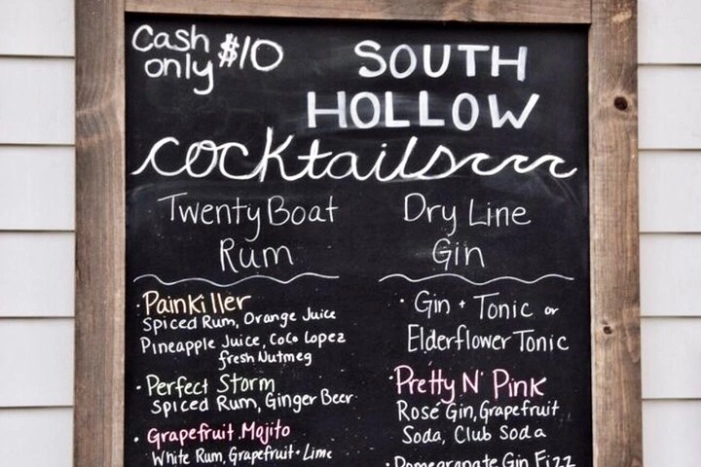 Cash only $10
SOUTH
HOLLOW
cocktails
Twenty Boat
Rum
· Painkiller
Spiced Rum, Orange Juice
Pineapple Juice, Coco Lopez
fresh Nutmeg
· Perfect Storm
Spiced Rum, Ginger Beer
· Grapefruit Mojito
White Rum, Grapefruit · Lime
Dry Line
Gin
· Gin + Tonic or
Elderflower Tonic
· Pretty N' Pink
Rosé Gin, Grapefruit
Soda, Club Soda
· Pomegranate Gin Fizz